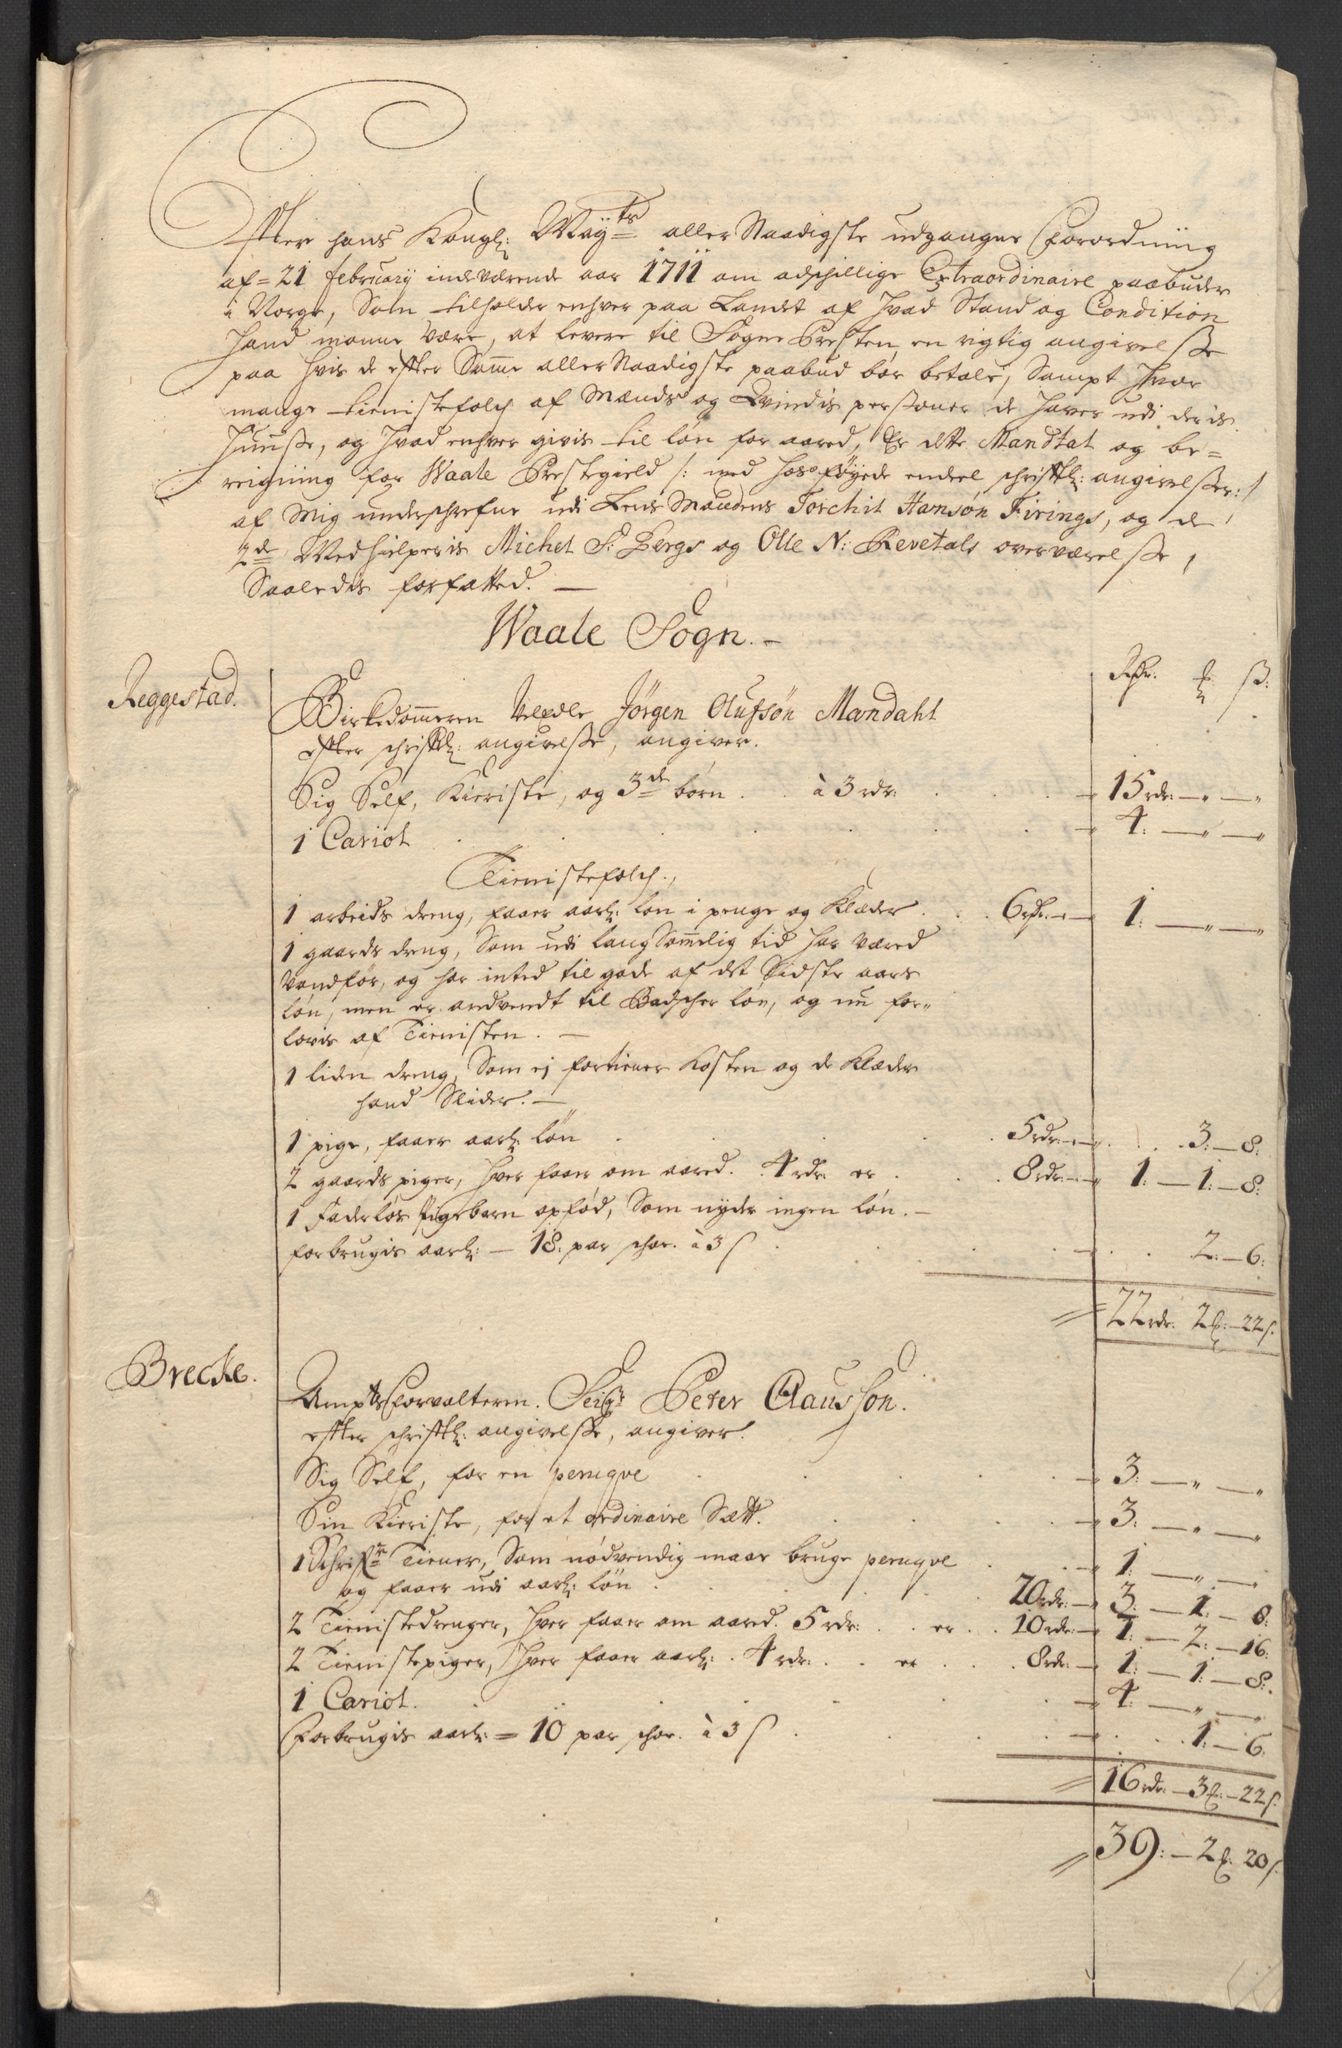 Efter hans Kongl: May:ts allerNaadigste udgangne Forordning
af 21 february indeværende aar 1711 om adschillige Extraordinaire paabuder
i Norge, Som tilholder enhver paa Landet af hvad Stand og Condition
hand monne være, at levere til SognePresten en rigtig angivelsse
paa hvis de efter Samme allerNaadigste paabud bør betale, Sampt hvor
mange tienistefolch af Mands og Qvindis persooner de haver udi deris
huusse, og hvad enhver givis til løn for aaret, Er dette Mandtal og be-
reigning for Waale Prestegield /: med hosføyede endeel schrifftl: angivelsser :/
af Mig underschrefne udi LensMandens Torchil Hansøn Firings, og de
2de Medhielperis Michel S: Bergs og Olle N: Revetals overværelsse,
Saaledis forfatted. —
Waale Sogn. —
Rdr. £ ß:
Reggestad.
Birkedommeren Veledle Jørgen Olufsøn Mandahl
efter schrifftl: angivelsse, angiver.
Sig Self, Kieriste, og 3de børn . . à 3 rdr: . . 15 rdr: — " — "
1 Cariol . . . 4: — " — "
Tienistefolch.,
1 arbeids dreng, faaer aarl: løn i penge og Klæder . . 6 rdr. — 1: — " — "
1 gaards dreng, Som udi langSommelig tid har været
Vandfør, og har inted til gode af det Sidste aars
løn, men er andvendt til Badscher løn, og nu for-
lovis af Tienisten. —
1 liden dreng, Som ej fortiener Kosten og de Klæder
hand Slider. —
1 pige, faaer aarl: løn . . . 5 rdr: — . . 3: — 8:
2 gaards piger, hver faaer om aaret. 4 rdr: er . . 8 rdr: — 1: — 1: — 8:
1 Faderløs Pigebarn opfød, Som nyder ingen løn. —
forbrugis aarl: — 18. par schoe. à 3 ß . . . 2: — 6:
22 rdr: 2 £: — 22 ß.
Brecke.
AmptsForvalteren. Seig:r Peter Claussøn.
efter schrifftl: angivelsse, angiver.
Sig Self, for en peruqve . . . 3: — " — "
Sin Kieriste, for et ordinaire Sætt. . . 3: — " — "
1 Schrifver Tiener, Som nødvendig maae bruge peruqve . . 1: — " — "
og faaer udi aarl: løn . . . 20 rdr: — 3: — 1: — 8:
2 Tienistedrenger, hver faaer om aaret. 5 rdr: . . er . . 10 rdr: — 1: — 2: — 16:
2 Tienistepiger, hver faaer aarl: . 4 rdr: . . er . . 8 rdr: — 1: — 1: — 8:
1 Cariol. . . . 4: — " — "
Forbrugis aarl: = 10 par schoe. à 3 ß . . . 1: — 6.
16 rdr: — 3 £: — 22 ß.
39: — 2 £: 20 ß.